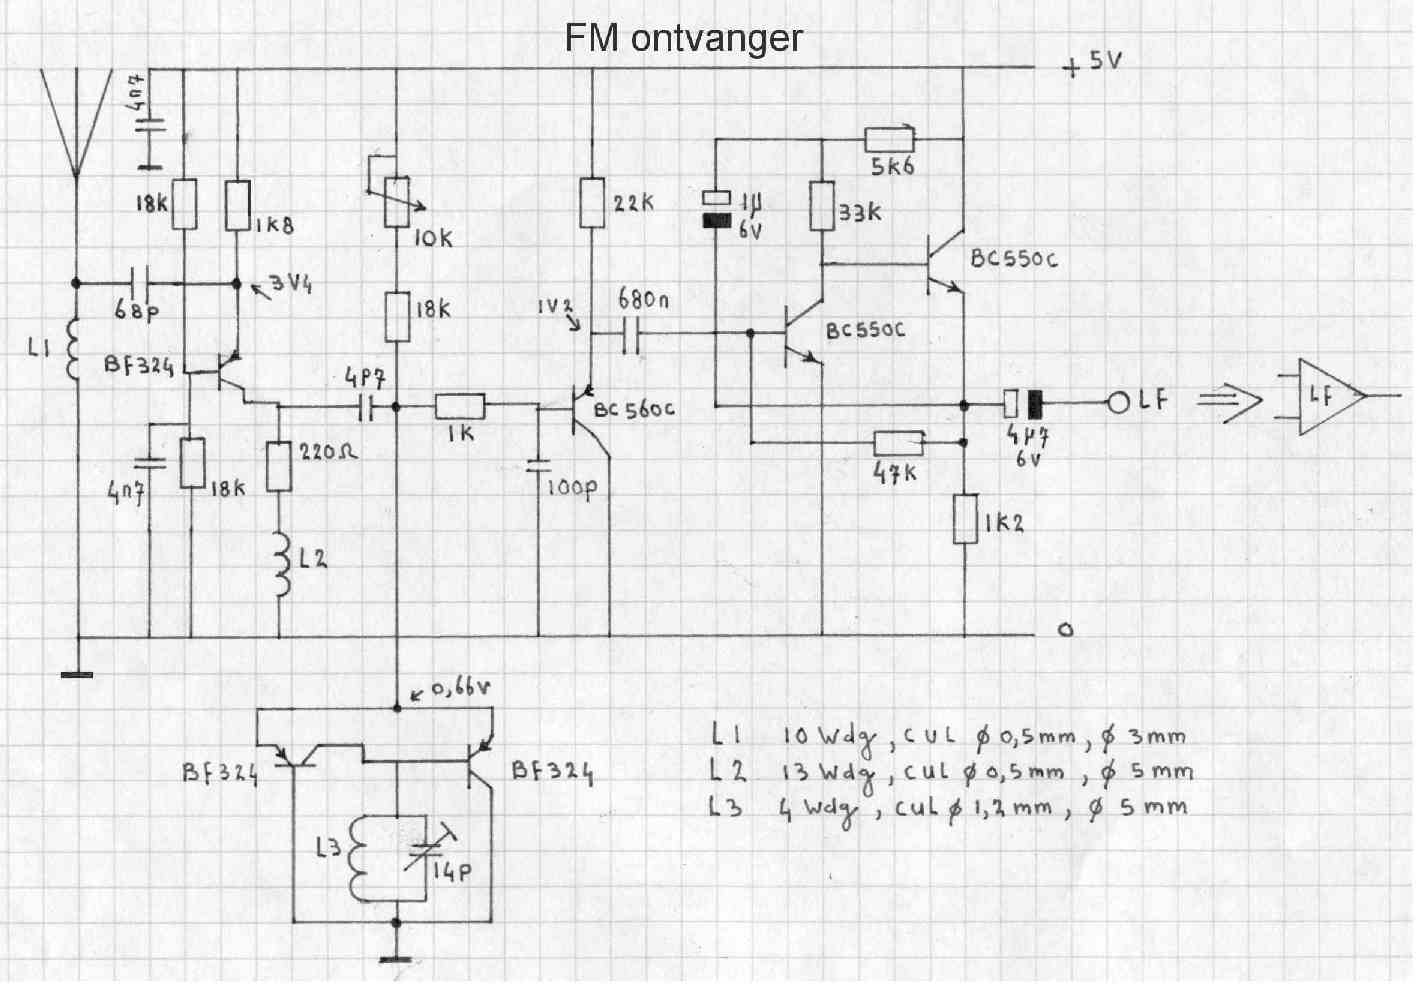 FM ontvanger
+ 5V
4n7
18k
1k8
3V4
68p
L1
BF324
4n7
18k
220Ω
L2
4p7
10k
18k
1k
100p
22k
1V2
680n
BC560C
1µ
6V
33k
5k6
BC550C
BC550C
47k
4µ7
6V
1k2
LF
LF
0
0,66V
BF324
BF324
L3
14p
L1 10 Wdg, CUL ϕ 0,5mm, ϕ 3mm
L2 13 Wdg, CUL ϕ 0,5mm, ϕ 5mm
L3 4 Wdg, CUL ϕ 1,2mm, ϕ 5mm